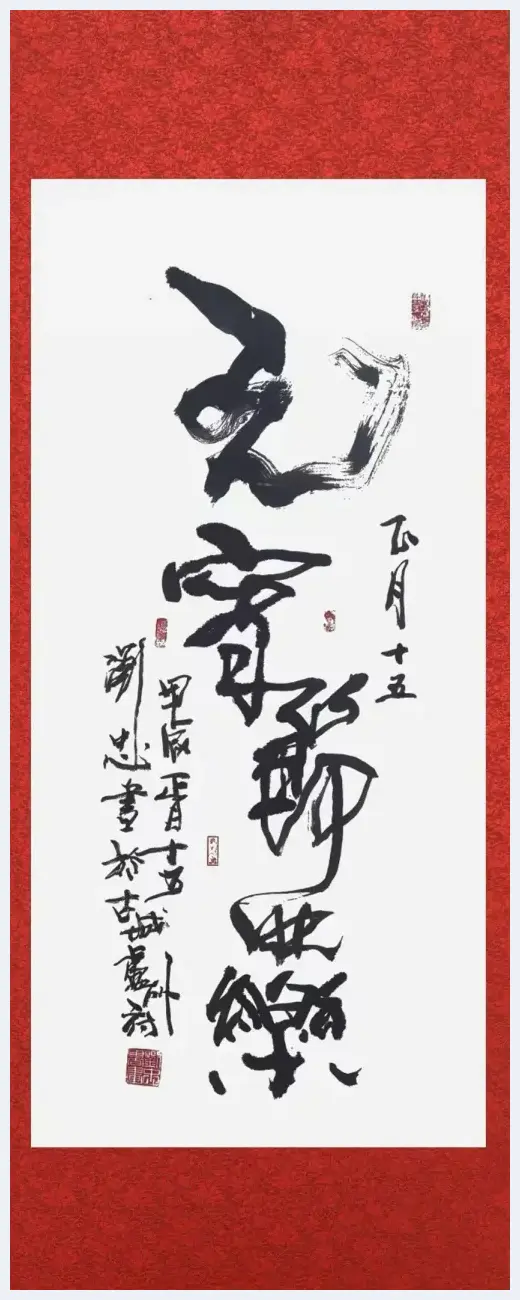 正月十五
元宵節快樂
甲辰正月十五
劉忠書於古城盧州